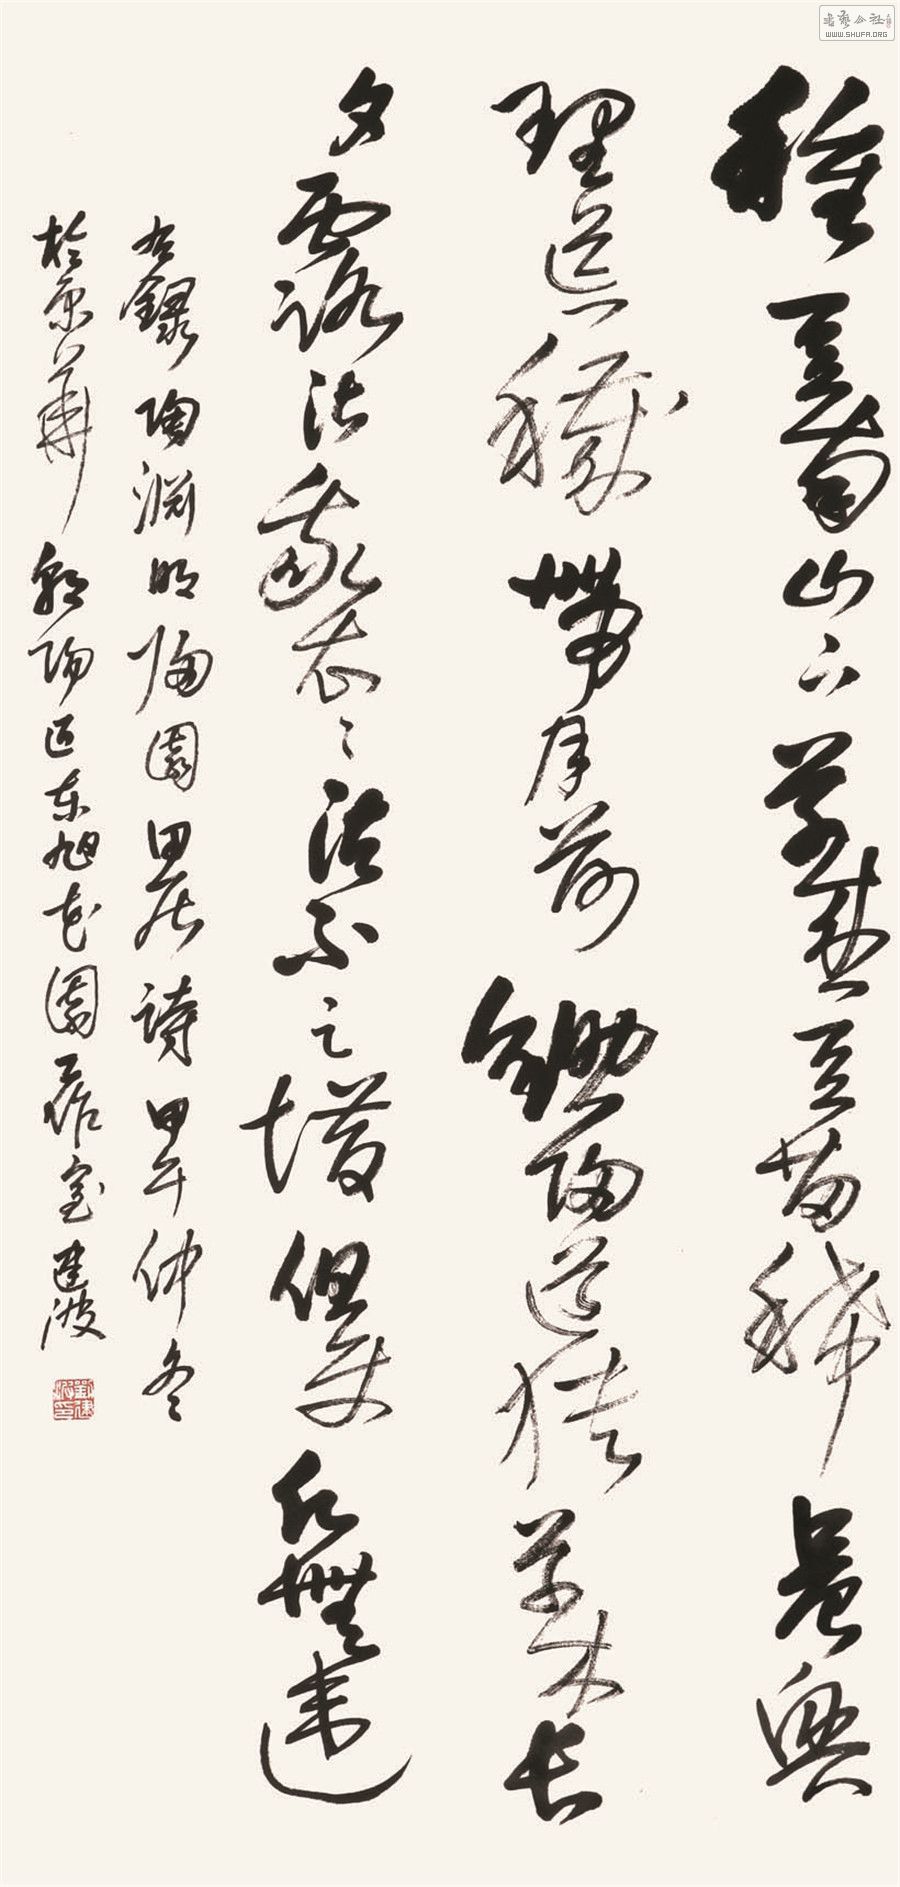 種豆南山下草盛豆苗稀晨興
理荒穢帶月荷鋤歸道狹草木長
夕露沾我衣々沾不足惜但使願無違
右錄陶淵明歸園田居詩甲午仲冬
於京華朝陽區东旭花園居室建波
劉建波印
書藝公社
WWW.SHUFA.ORG